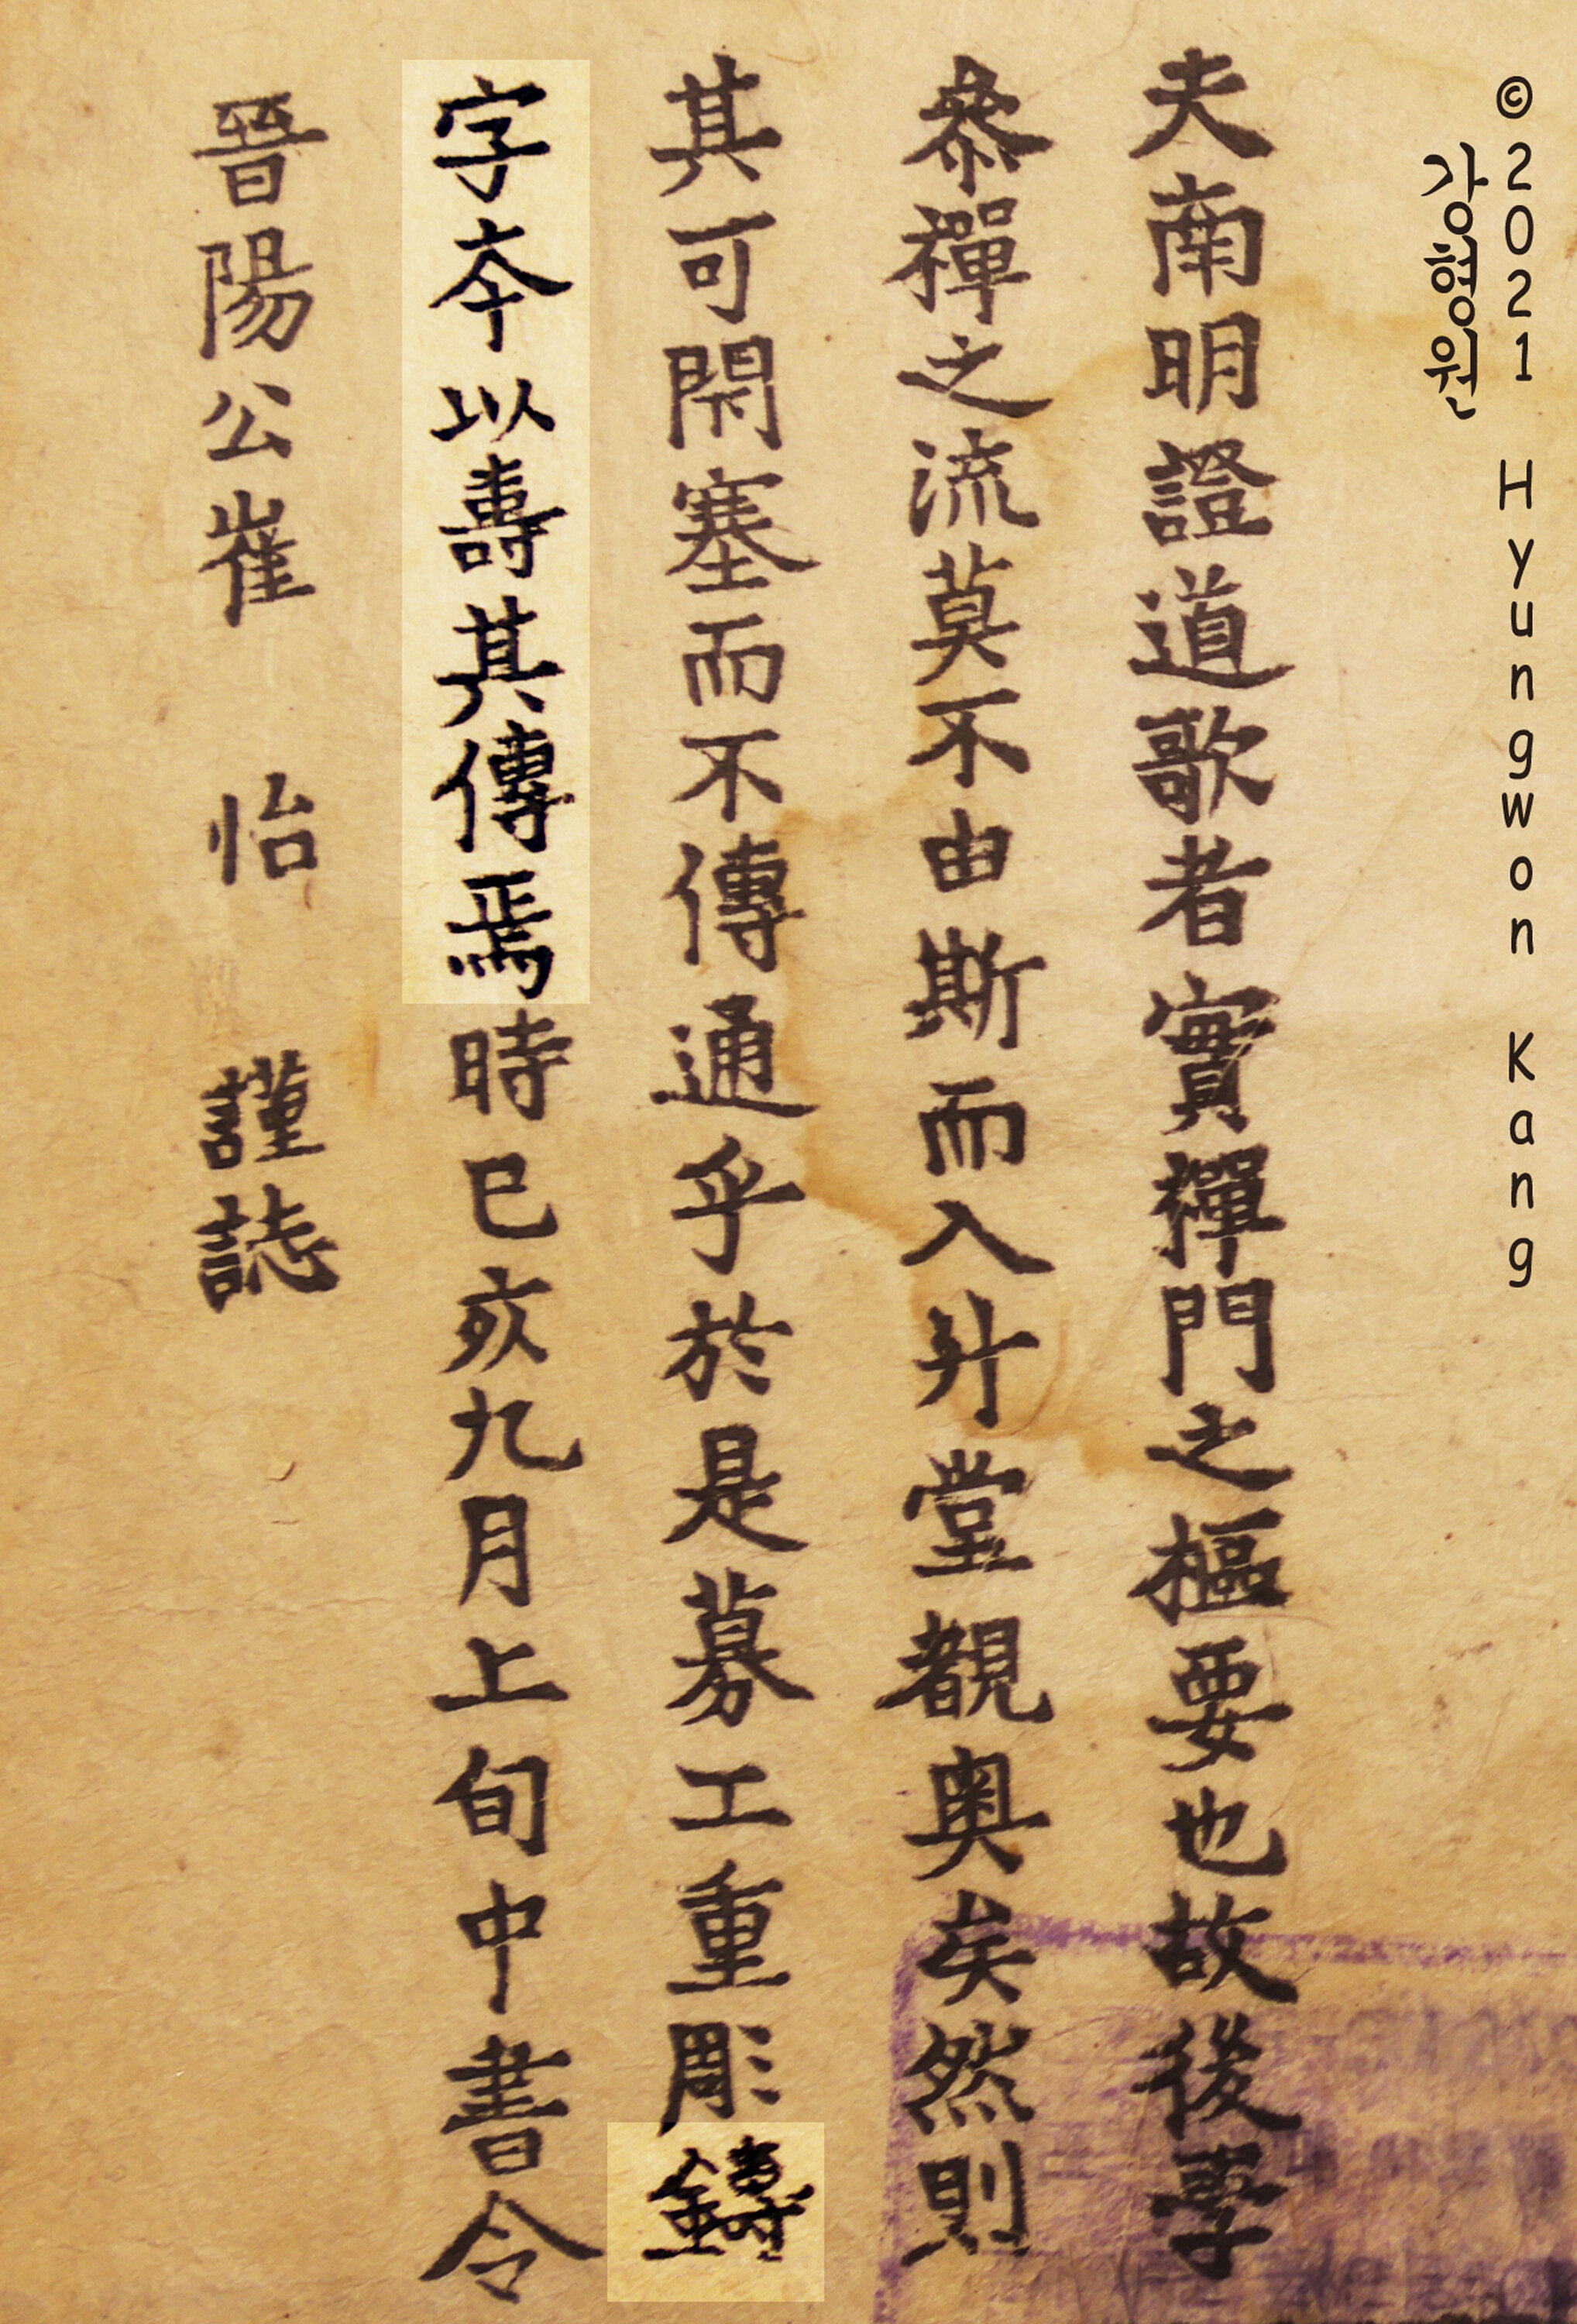 ©2021 Hyungwon Kang
강형원
夫南明證道歌者實禪門之樞要也故後學
叅禪之流莫不由斯而入升堂覩奥矣然則
其可閇塞而不傳通乎於是募工重彫鑄
字夲以壽其傳焉時巳亥九月上旬中書令
晉陽公崔 怡 謹誌